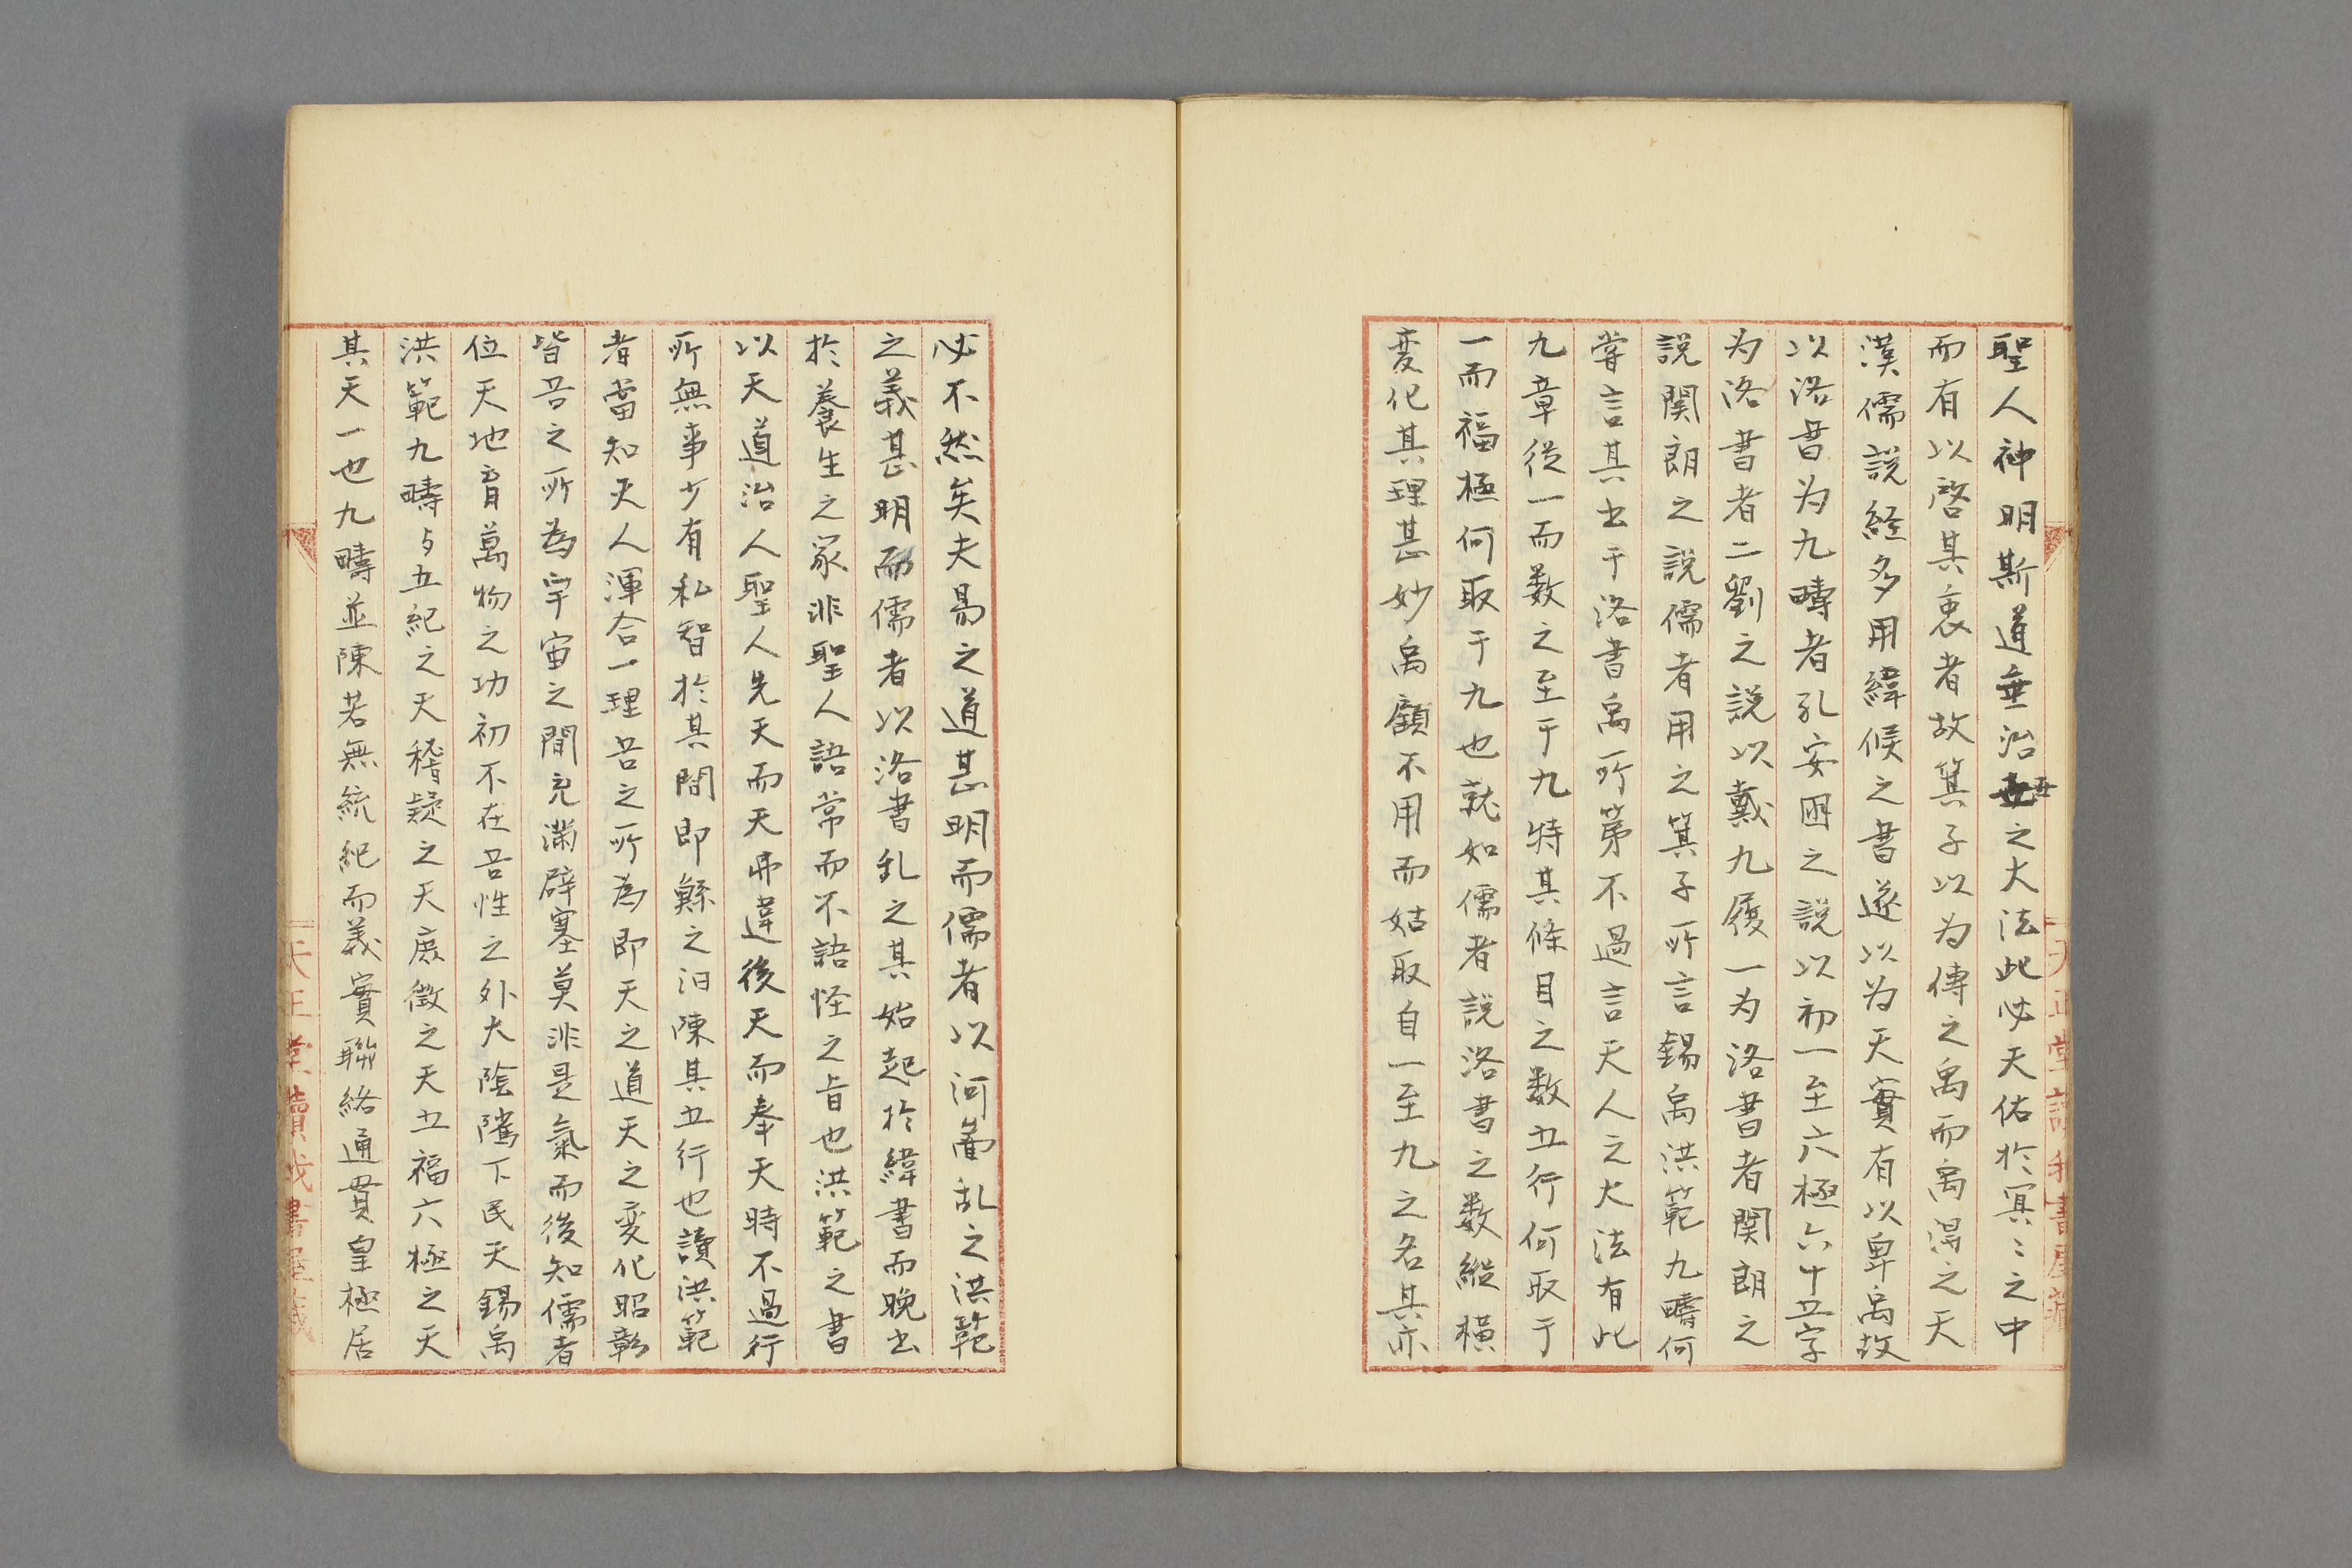 聖人神明斯道垂治世之大法此必天佑於冥〻之中
而有以啓其衷者故箕子以为傳之禹而禹得之天
漢儒說經多用緯候之書遂以为天實有以畀禹故
以洛書为九疇者孔安囯之說以初一至六極六十五字
为洛書者二劉之說以戴九履一为洛書者関朗之
說関朗之說儒者用之箕子所言錫禹洪範九疇何
嘗言其出于洛書禹所第不過言天人之大法有此
九章從一而数之至于九特其條目之数五行何取于
一而福極何取于九也就如儒者說洛書之数縱橫
変化其理甚妙禹顧不用而姑取自一至九之名其亦
必不然矣夫易之道甚明而儒者以河啚乱之洪範
之義甚明而儒者以洛書乱之其始起於緯書而晚出
於養生之家非聖人語常而不語怪之旨也洪範之書
以天道治人聖人先天而天弗違後天而奉天時不過行
所無事少有私智於其間即鯀之汩陳其五行也讀洪範
者當知天人渾合一理吾之所為即天之道天之変化昭彰
皆吾之所為宇宙之間充滿辟塞莫非是氣而後知儒者
位天地育萬物之功初不在吾性之外大陰隲下民天錫禹
洪範九疇与五紀之天稽疑之天庶徵之天五福六極之天
其天一也九疇並陳若無統紀而義實聯絡通貫皇極居